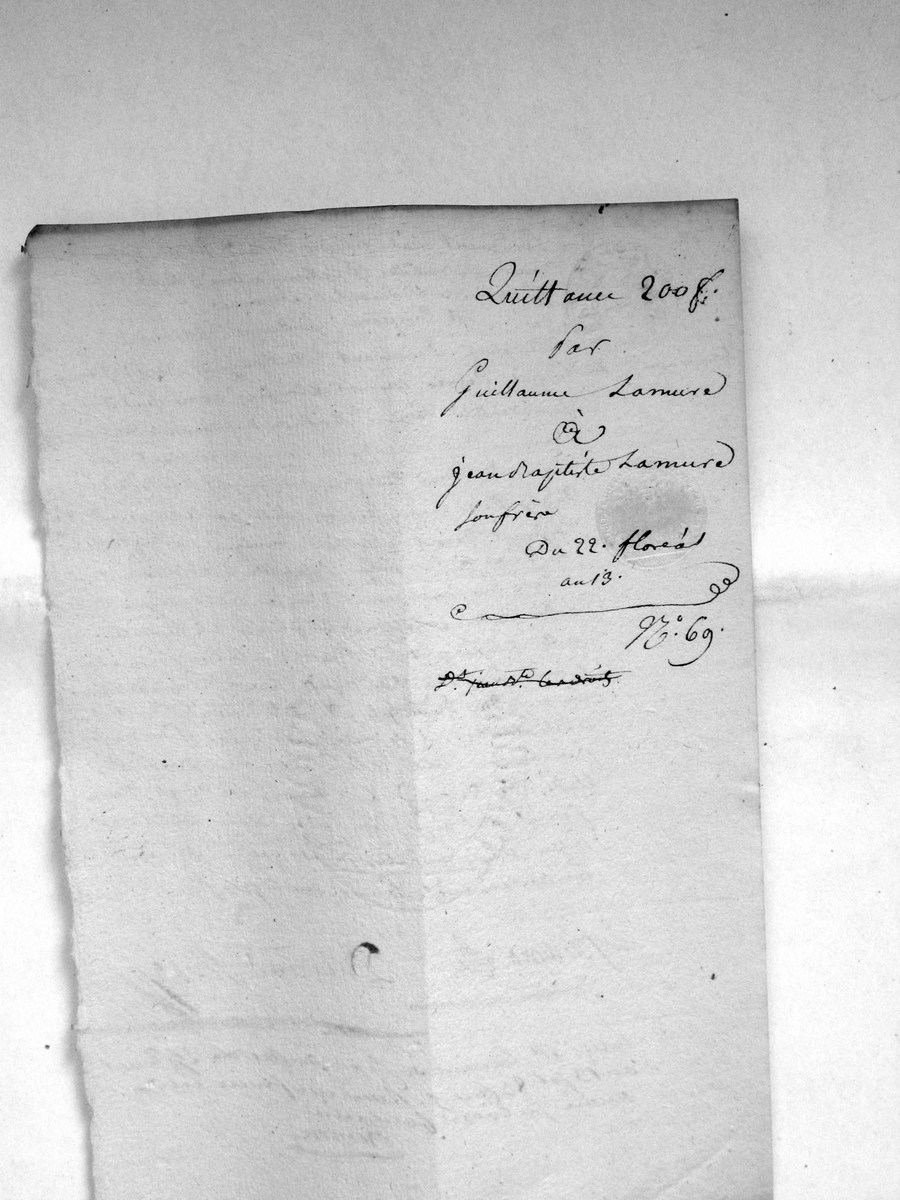 Quittance 200 f.
Par
Guillaume Lamure
à
jean Baptiste Lamure
son frère
Du 22. floréal
an 13.
N.° 69.